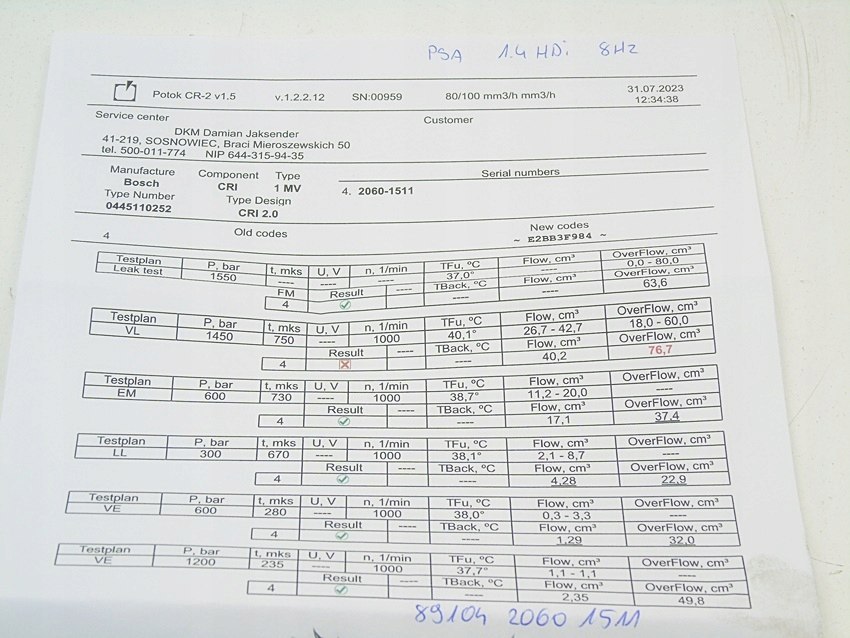 PSA 1.4 HDi 8Hz
Potok CR-2 v1.5 v.1.2.2.12 SN:00959 80/100 mm3/h mm3/h 31.07.2023 12:34:38
Service center Customer
DKM Damian Jaksender
41-219, SOSNOWIEC, Braci Mieroszewskich 50
tel. 500-011-774 NIP 644-315-94-35
Manufacture Component Type Serial numbers
Bosch CRI 1 MV 4. 2060-1511
Type Number Type Design
0445110252 CRI 2.0
4 Old codes New codes
~ E2BB3F984 ~
Testplan P, bar t, mks U, V n, 1/min TFu, ºC Flow, cm³ OverFlow, cm³
Leak test 1550 ---- ---- ---- 37,0° ---- 0,0 - 80,0
FM Result ---- TBack, ºC Flow, cm³ OverFlow, cm³
4 ---- ---- 63,6
Testplan P, bar t, mks U, V n, 1/min TFu, ºC Flow, cm³ OverFlow, cm³
VL 1450 750 ---- 1000 40,1° 26,7 - 42,7 18,0 - 60,0
Result ---- TBack, ºC Flow, cm³ OverFlow, cm³
4 ---- 40,2 76,7
Testplan P, bar t, mks U, V n, 1/min TFu, ºC Flow, cm³ OverFlow, cm³
EM 600 730 ---- 1000 38,7° 11,2 - 20,0 ----
Result ---- TBack, ºC Flow, cm³ OverFlow, cm³
4 ---- 17,1 37,4
Testplan P, bar t, mks U, V n, 1/min TFu, ºC Flow, cm³ OverFlow, cm³
LL 300 670 ---- 1000 38,1° 2,1 - 8,7 ----
Result ---- TBack, ºC Flow, cm³ OverFlow, cm³
4 ---- 4,28 22,9
Testplan P, bar t, mks U, V n, 1/min TFu, ºC Flow, cm³ OverFlow, cm³
VE 600 280 ---- 1000 38,0° 0,3 - 3,3 ----
Result ---- TBack, ºC Flow, cm³ OverFlow, cm³
4 ---- 1,29 32,0
Testplan P, bar t, mks U, V n, 1/min TFu, ºC Flow, cm³ OverFlow, cm³
VE 1200 235 ---- 1000 37,7° 1,1 - 1,1 ----
Result ---- TBack, ºC Flow, cm³ OverFlow, cm³
4 ---- 2,35 49,8
89104 2060 1511